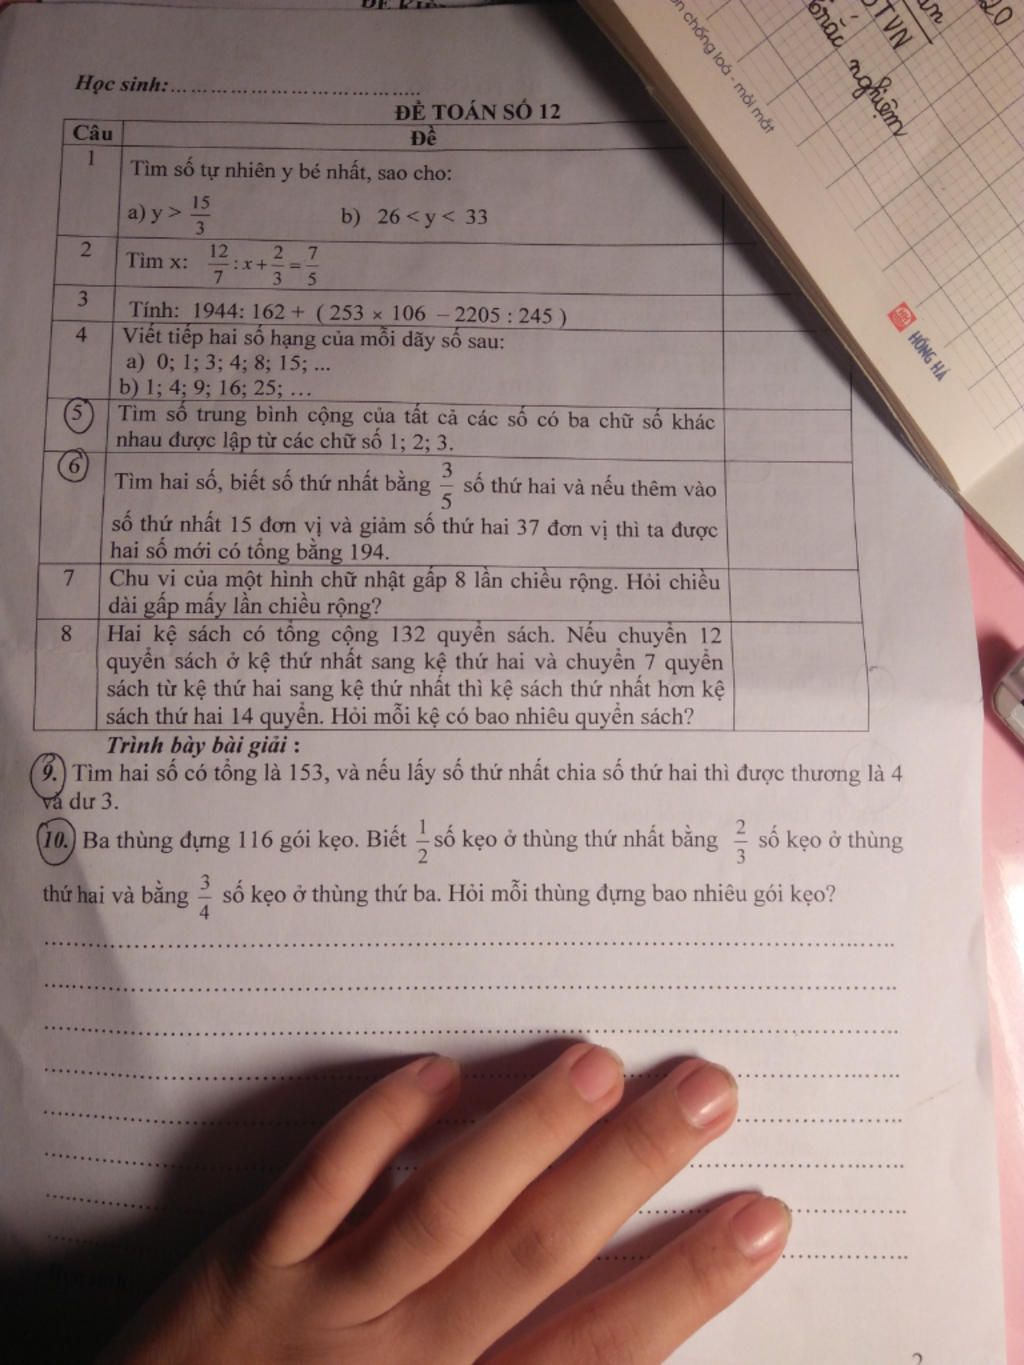 Học sinh:..........................................
ĐỀ TOÁN SỐ 12
Câu Đề
1 Tìm số tự nhiên y bé nhất, sao cho:
a) y > 15/3 b) 26 < y < 33
2 Tìm x: 12/7 : x + 2/3 = 7/5
3 Tính: 1944: 162 + ( 253 × 106 – 2205 : 245 )
4 Viết tiếp hai số hạng của mỗi dãy số sau:
a) 0; 1; 3; 4; 8; 15; ...
b) 1; 4; 9; 16; 25; …
5 Tìm số trung bình cộng của tất cả các số có ba chữ số khác
nhau được lập từ các chữ số 1; 2; 3.
6 Tìm hai số, biết số thứ nhất bằng 3/5 số thứ hai và nếu thêm vào
số thứ nhất 15 đơn vị và giảm số thứ hai 37 đơn vị thì ta được
hai số mới có tổng bằng 194.
7 Chu vi của một hình chữ nhật gấp 8 lần chiều rộng. Hỏi chiều
dài gấp mấy lần chiều rộng?
8 Hai kệ sách có tổng cộng 132 quyển sách. Nếu chuyển 12
quyển sách ở kệ thứ nhất sang kệ thứ hai và chuyển 7 quyển
sách từ kệ thứ hai sang kệ thứ nhất thì kệ sách thứ nhất hơn kệ
sách thứ hai 14 quyển. Hỏi mỗi kệ có bao nhiêu quyển sách?
Trình bày bài giải :
9. Tìm hai số có tổng là 153, và nếu lấy số thứ nhất chia số thứ hai thì được thương là 4
và dư 3.
10. Ba thùng đựng 116 gói kẹo. Biết 1/2 số kẹo ở thùng thứ nhất bằng 2/3 số kẹo ở thùng
thứ hai và bằng 3/4 số kẹo ở thùng thứ ba. Hỏi mỗi thùng đựng bao nhiêu gói kẹo?
chống loá - mỏi mắt
20
BTVN
nghiệm
HỒNG HÀ